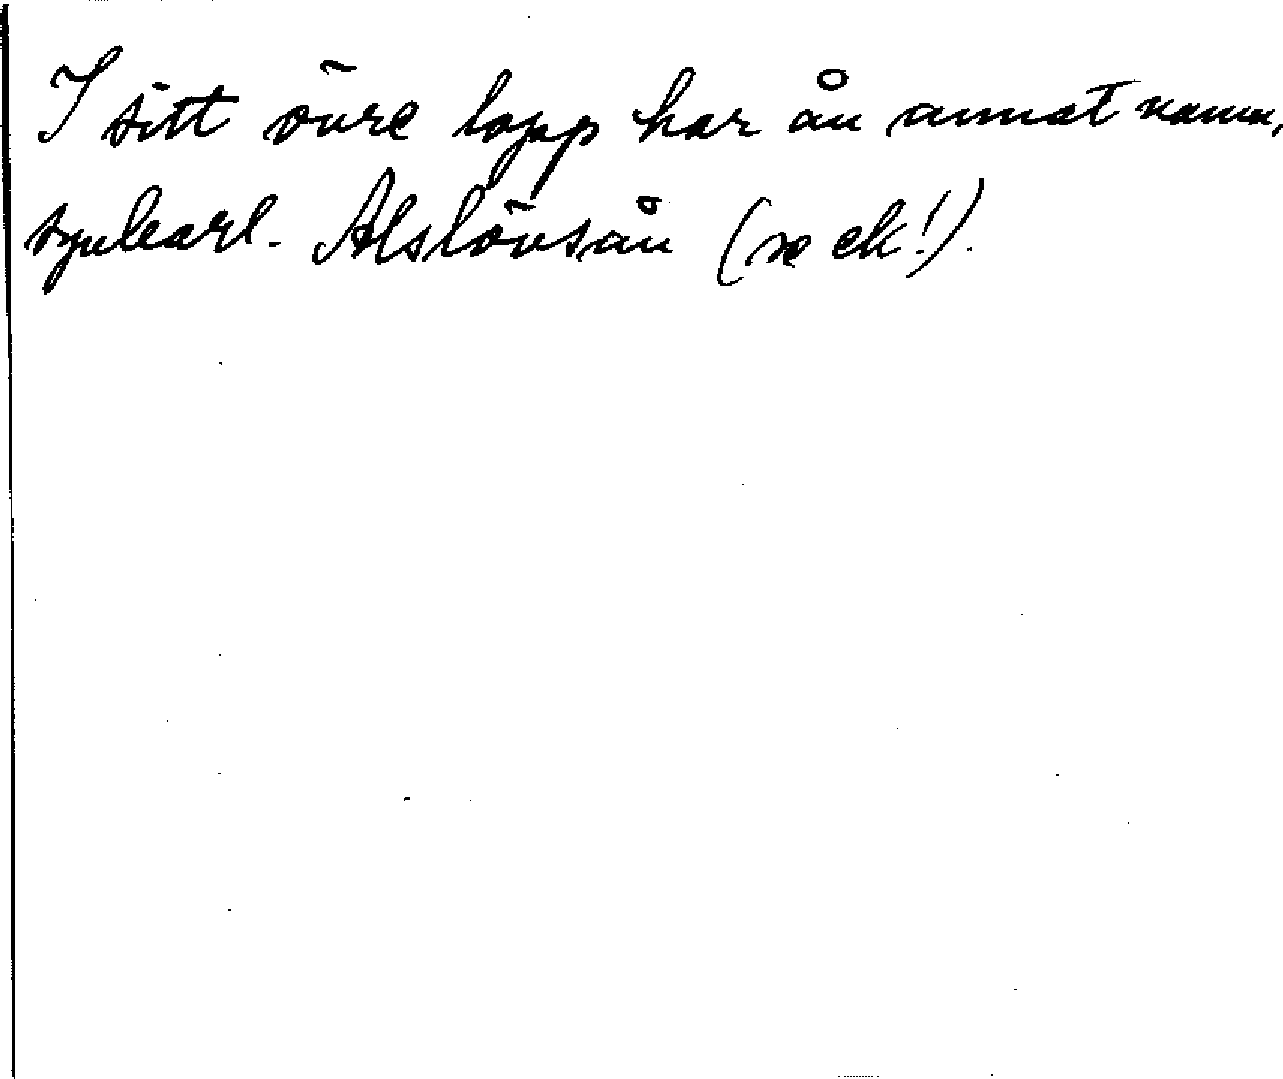 I sitt övre lopp har ån annat namn,
synbarl. Alslövsån (se ek!).